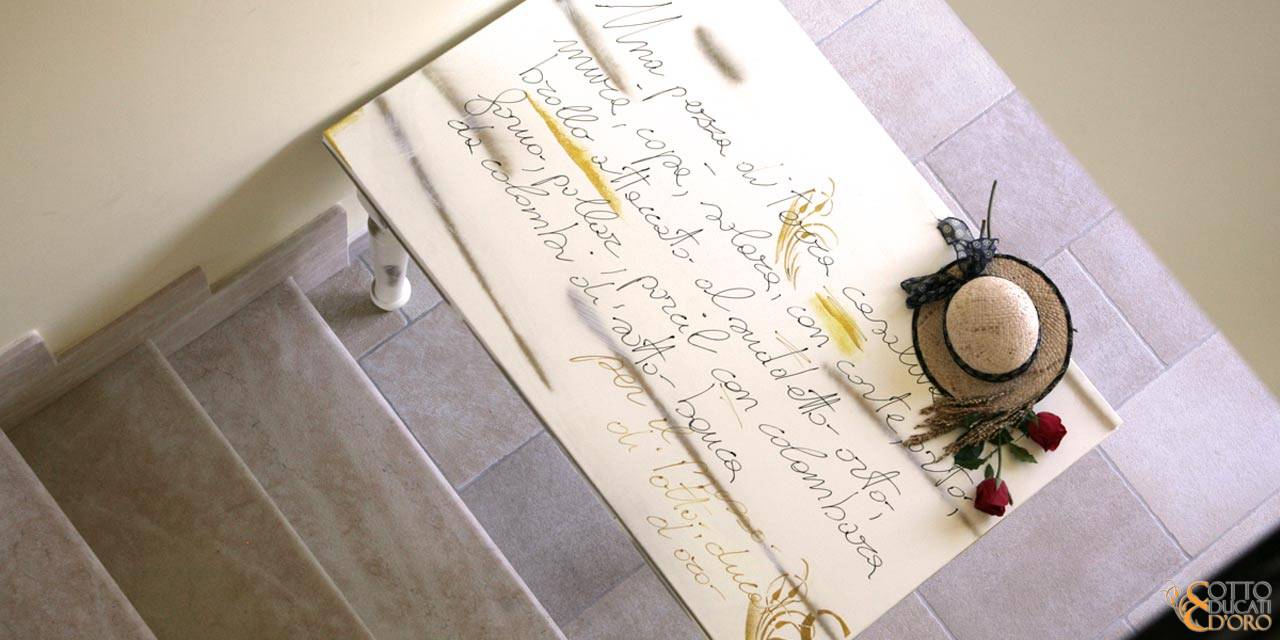 Una pezza di terra casaliva,
murà, copà, solara, con corte, orto,
brollo attaccato al suddetto orto,
forno, pollar, porcil con colombara
da colombi di sotto banca
per il prezzo
di 8otto ducati
d'oro
8OTTO
DUCATI
D'ORO